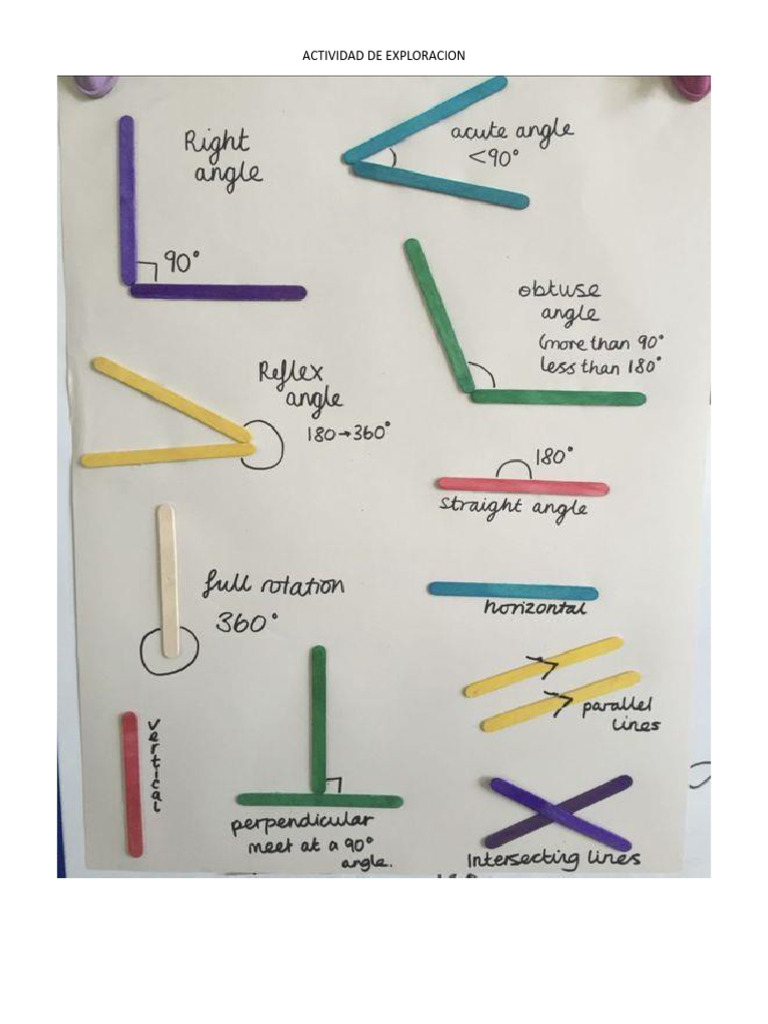 ACTIVIDAD DE EXPLORACION
Right
angle
90°
acute angle
<90°
obtuse
angle
(more than 90°
less than 180°
Reflex
angle
180→360°
180°
straight angle
full rotation
360°
horizontal
parallel
lines
vertical
perpendicular
meet at a 90°
angle.
Intersecting lines